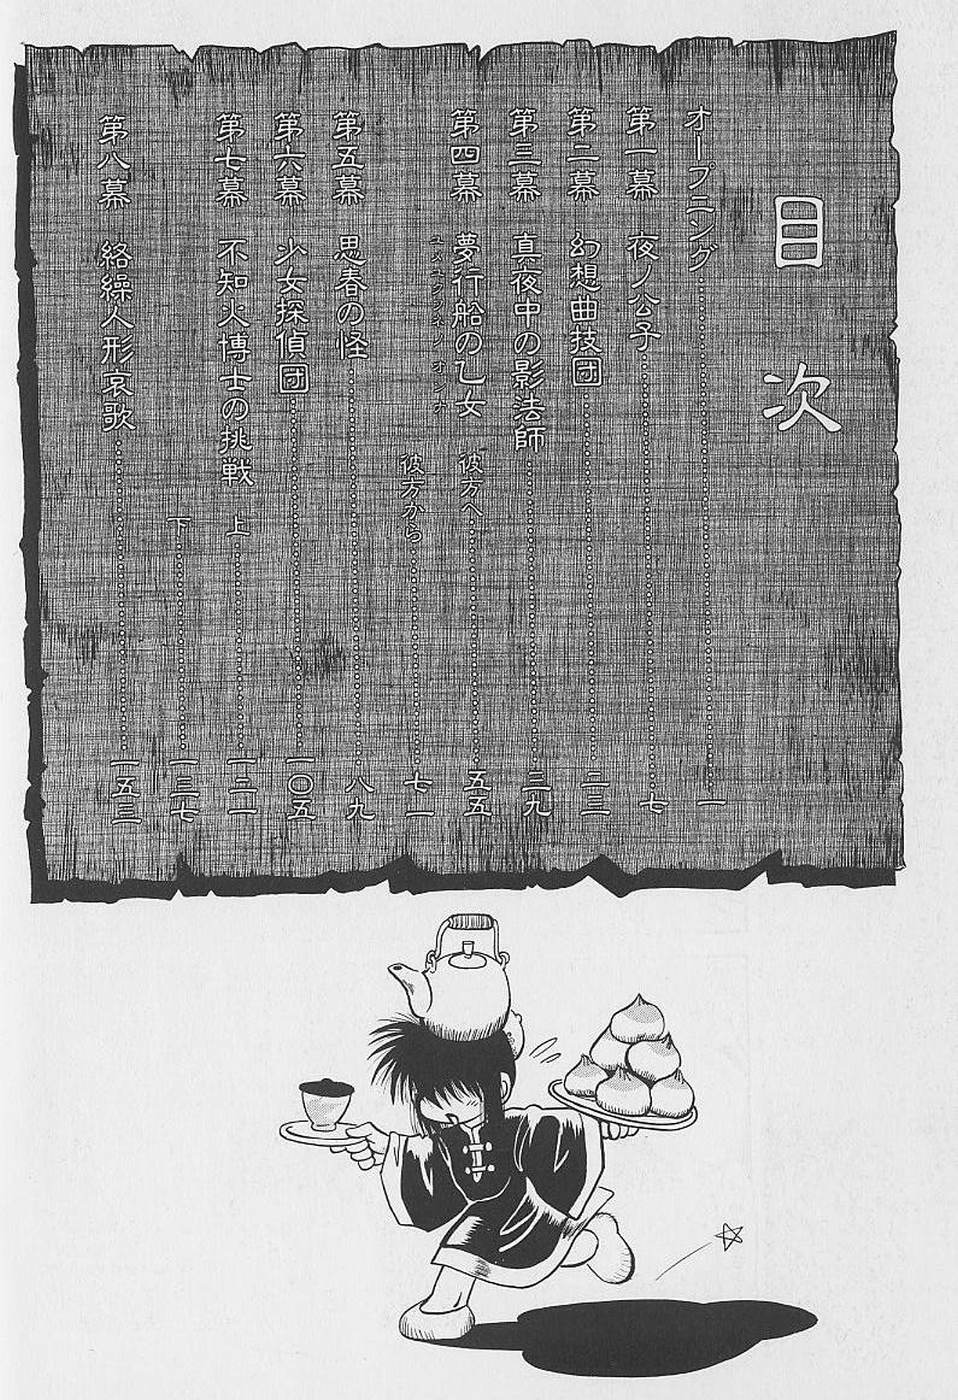 目次
オープニング……一
第一幕 夜ノ公子……七
第二幕 幻想曲技団……二三
第三幕 真夜中の影法師……三九
第四幕 夢行船の乙女 彼方へ……五五
ユメユクフネノ オンナ
彼方から……七一
第五幕 思春の怪……八九
第六幕 少女探偵団……一〇五
第七幕 不知火博士の挑戦 上……一二一
下……一三七
第八幕 絡繰人形哀歌……一五三